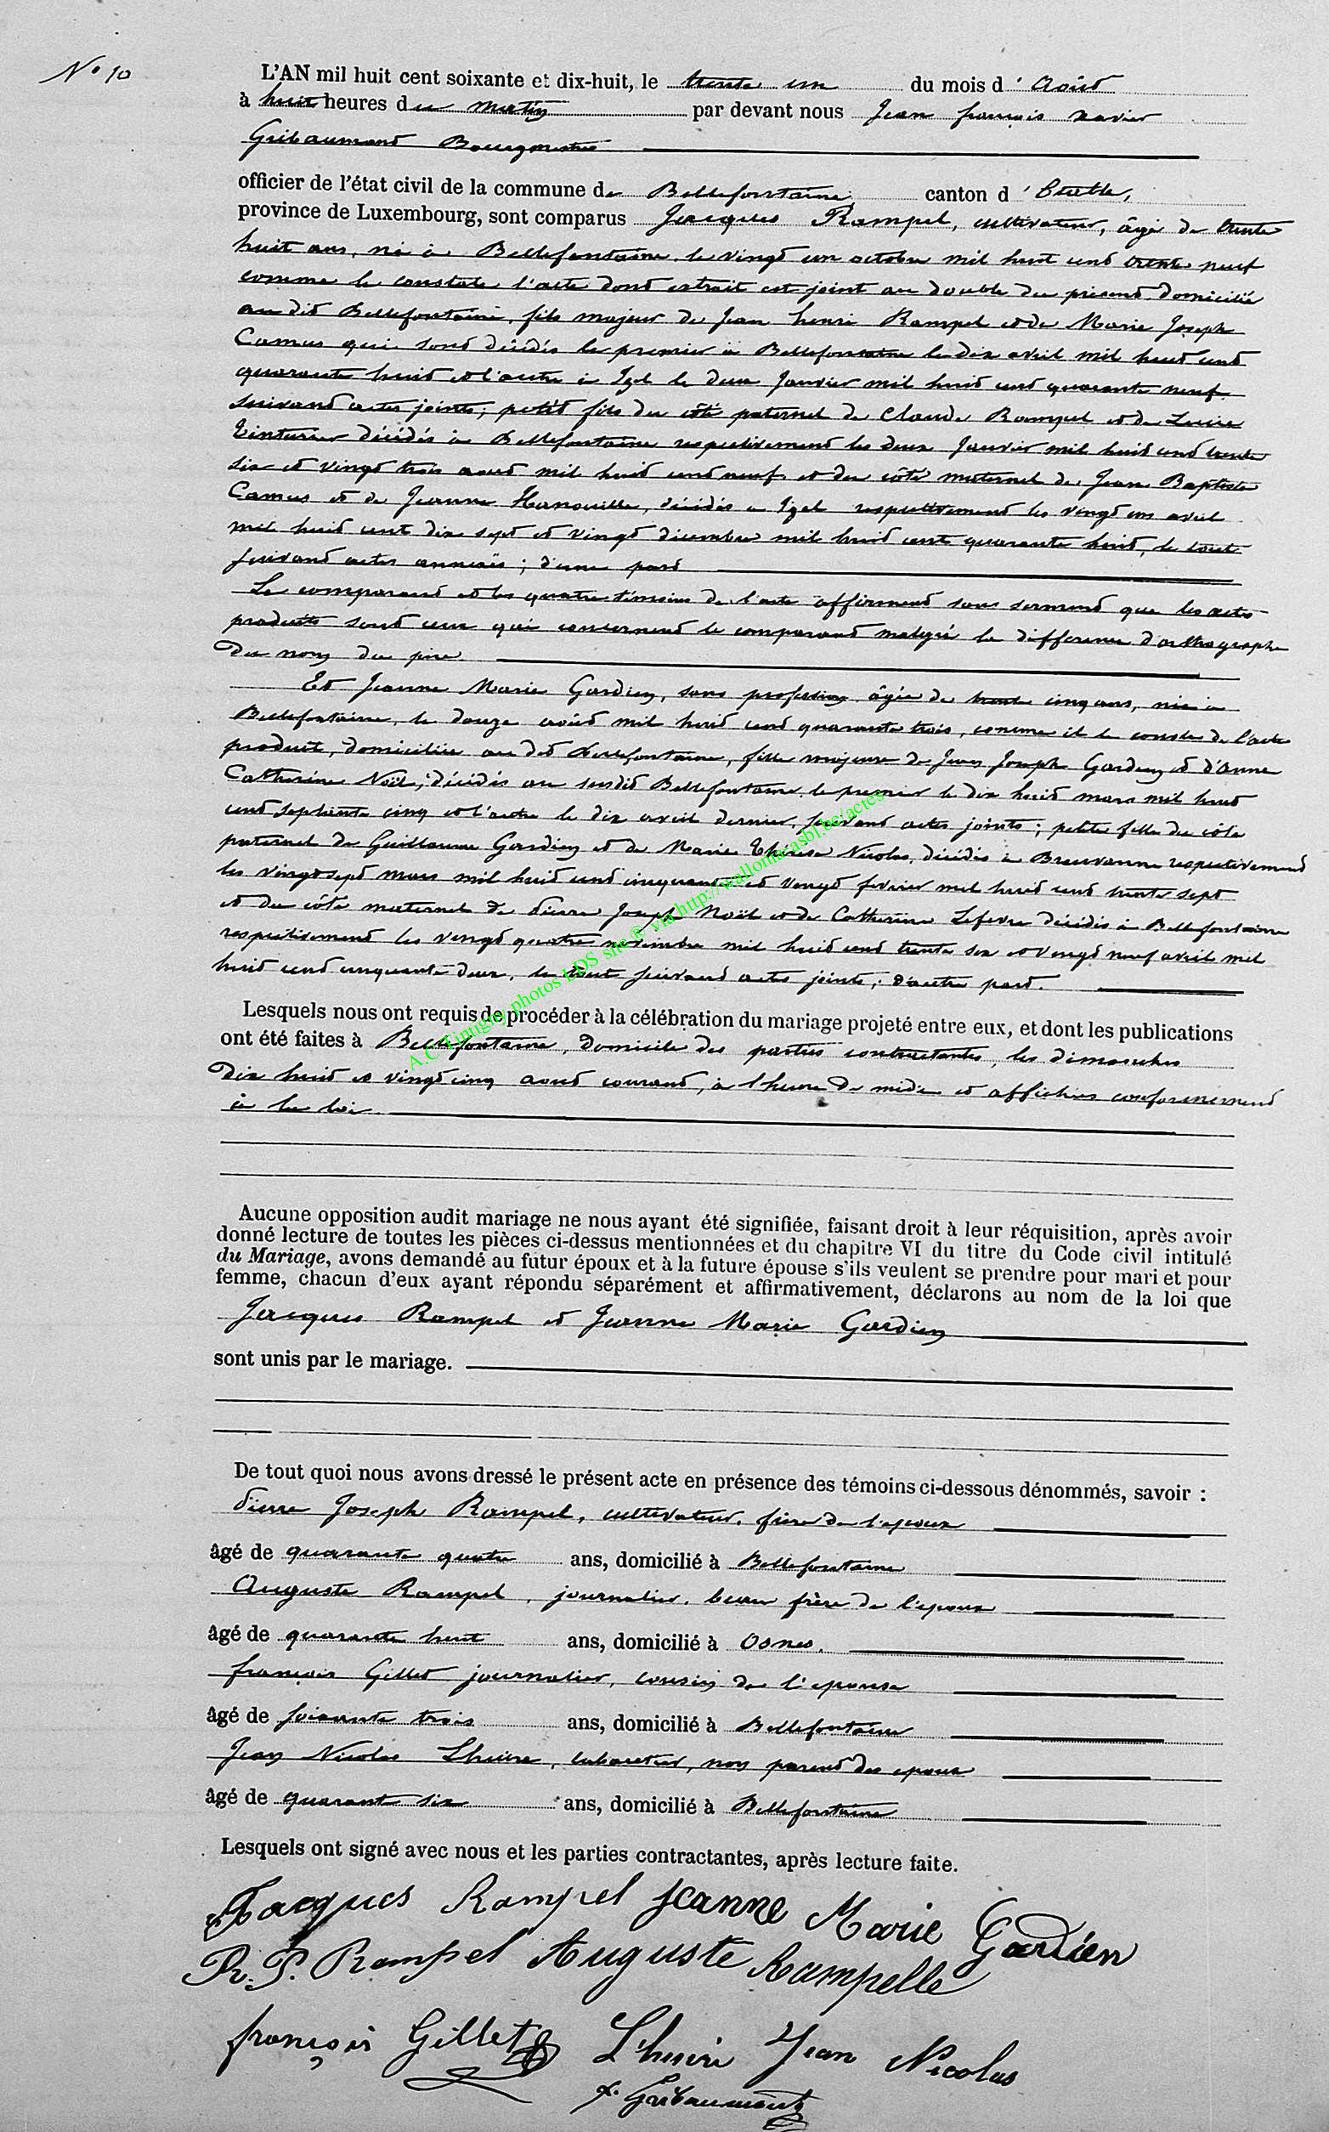 N° 10
L'AN mil huit cent soixante et dix-huit, le trente un du mois d' Août
à huit heures du matin par devant nous Jean françois xavier
Gribaumont Bourgmestre
officier de l'état civil de la commune de Bellefontaine canton d' Etalle,
province de Luxembourg, sont comparus Jacques Rampel, cultivateur, âgé de trente
huit ans, né à Bellefontaine le vingt un octobre mil huit cent trente neuf
comme le constate l'acte dont extrait est joint au double du présent domicilié
au dit Bellefontaine, fils majeur de Jean henri Rampel et de Marie Joseph
Camus qui sont décédés le premier à Bellefontaine le dix avril mil huit cent
quarante huit et l'autre à Izel le deux Janvier mil huit cent quarante neuf
suivant actes joints; petit fils du côté paternel de Claude Rampel et de Lucie
Tinturier décédés à Bellefontaine respectivement les deux Janvier mil huit cent trente
six et vingt trois aout mil huit cent neuf et du côté maternel de Jean Baptiste
Camus et de Jeanne Hansuille, décédés à Izel respectivement les vingt un avril
mil huit cent dix sept et vingt décembre mil huit cent quarante huit, le tout
suivant actes annexés; d'une part
Le comparant et les quatre témoins de l'acte affirment sous serment que les actes
produits sont ceux qui concernent le comparant malgré la différence d'orthographe
du nom du père
Et Jeanne Marie Gardien, sans profession âgée de trente cinq ans, née à
Bellefontaine, le douze août mil huit cent quarante trois, comme il le conste de l'acte
produit, domiciliée au dit Bellefontaine, fille majeure de Jean Joseph Gardien et d'Anne
Catherine Noël, décédés au susdit Bellefontaine le premier le dix huit mars mil huit
cent septante cinq et l'autre le dix avril dernier, suivant actes joints; petite fille du côté
paternel de Guillaume Gardien et de Marie Thérèse Nicolas, décédés à Breuvanne respectivement
les vingt sept mars mil huit cent cinquante et vingt février mil huit cent trente sept
et du côté maternel de Pierre Joseph Noël et de Catherine Lefevre décédés à Bellefontaine
respectivement les vingt quatre novembre mil huit cent trente six et vingt neuf avril mil
huit cent cinquante deux, le tout suivant actes joints; d'autre part.
A.C. Tintigny photos LDS site ® via http://wallonia-asbl.be/actes
Lesquels nous ont requis de procéder à la célébration du mariage projeté entre eux, et dont les publications
ont été faites à Bellefontaine, domicile des parties contractantes, les dimanches
dix huit et vingt cinq aout courant, à l'heure de midi et affichées conformément
à la loi
Aucune opposition audit mariage ne nous ayant été signifiée, faisant droit à leur réquisition, après avoir
donné lecture de toutes les pièces ci-dessus mentionnées et du chapitre VI du titre du Code civil intitulé
du Mariage, avons demandé au futur époux et à la future épouse s'ils veulent se prendre pour mari et pour
femme, chacun d'eux ayant répondu séparément et affirmativement, déclarons au nom de la loi que
Jacques Rampel et Jeanne Marie Gardien
sont unis par le mariage.
De tout quoi nous avons dressé le présent acte en présence des témoins ci-dessous dénommés, savoir :
Pierre Joseph Rampel, cultivateur, frère de l'epoux
âgé de quarante quatre ans, domicilié à Bellefontaine
Auguste Rampel, journalier, beau frère de l'epoux
âgé de quarante huit ans, domicilié à Osnes.
françois Gillet journalier, cousin de l'epouse
âgé de soixante trois ans, domicilié à Bellefontaine
Jean Nicolas Lhuire, cabaretier, non parent des epoux
âgé de quarante six ans, domicilié à Bellefontaine
Lesquels ont signé avec nous et les parties contractantes, après lecture faite.
Jacques Rampel Jeanne Marie Gardien
P. J. Rampel Auguste Rampelle
françois Gillet Lhuire Jean Nicolas
x. Gribaumont